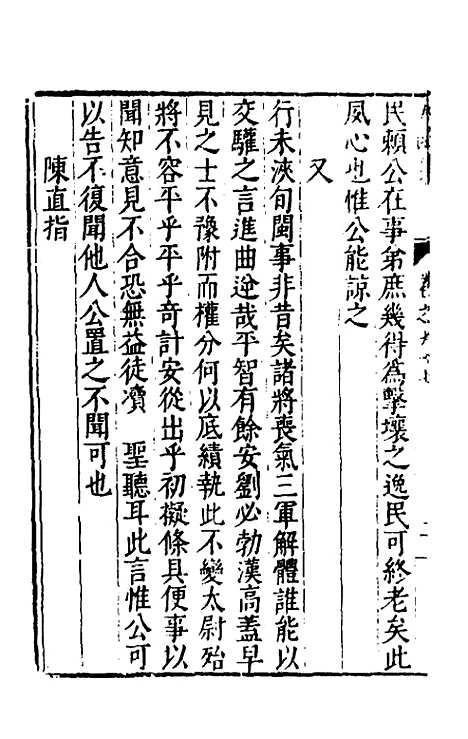 民賴公在事弟庶幾得為擊壤之逸民可終老矣此
夙心也惟公能諒之
又
行未浹旬閩事非昔矣諸將喪氣三軍解體誰能以
交驩之言進曲逆哉平智有餘安劉必勃漢高蓋早
見之士不豫附而權分何以底績執此不變太尉殆
將不容平乎平乎奇計安從出乎初擬條具便事以
聞知意見不合恐無益徒瀆　聖聽耳此言惟公可
以告不復聞他人公置之不聞可也
陳直指